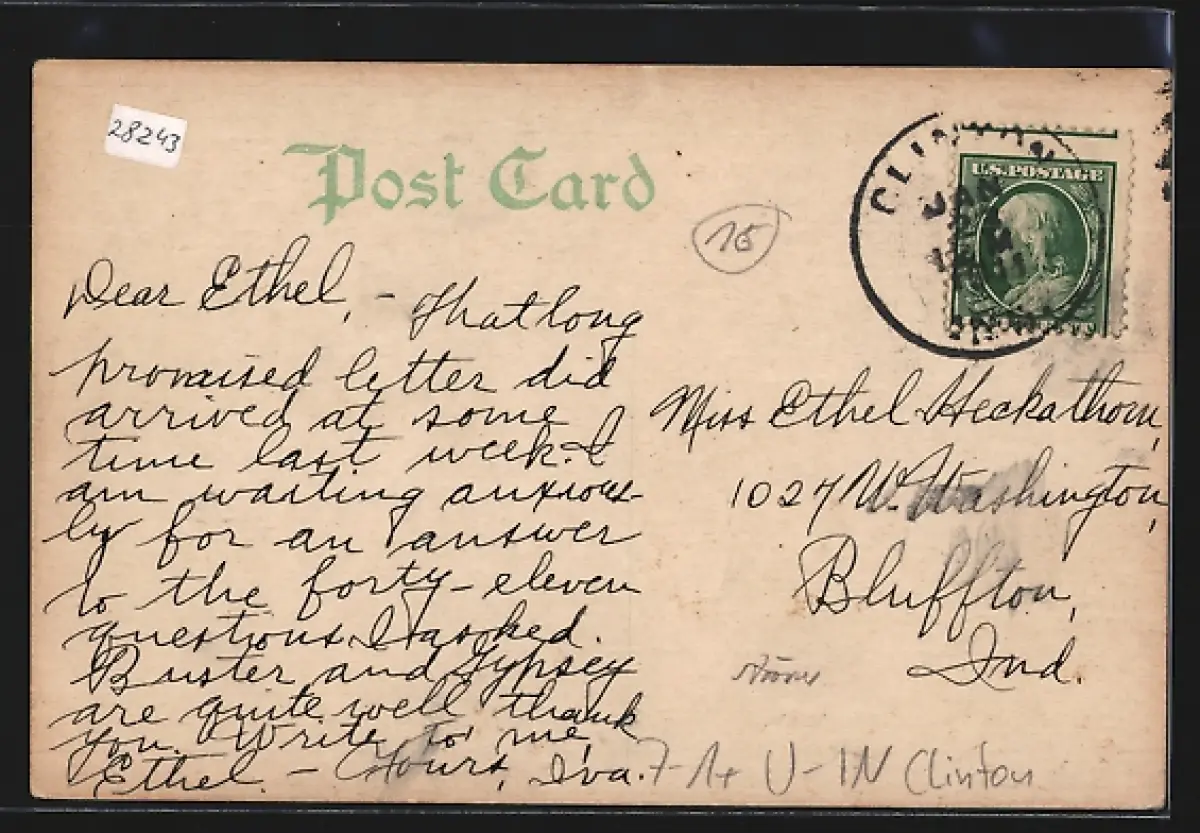 28243
Post Card
CLINTON
JAN
11
IND.
U.S. POSTAGE
15
Dear Ethel, – That long
promised letter did
arrived at some
time last week. I
am waiting anxious-
ly for an answer
to the forty-eleven
questions I asked.
Buster and Gypsey
are quite well thank
you. Write to me,
Ethel – Yours, Iva.
Miss Ethel Heckathorn,
1027 W. Washington,
Bluffton,
Ind.
U-IN Clinton